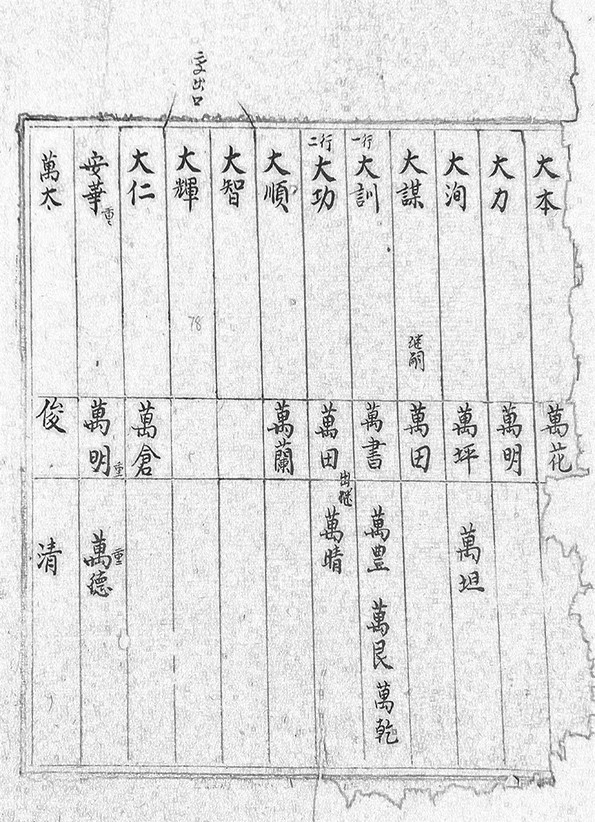 大本 萬花
大力 萬明
大洵 萬坪 萬坦
大謀 継嗣 萬田
一行 大訓 萬書 萬豊 萬艮 萬乾
二行 大功 萬田 出継 萬晴
大順 萬蘭
大智
大輝 78
大仁 萬倉
安華 重 萬明 重 萬德 重
萬太 俊 清
出口